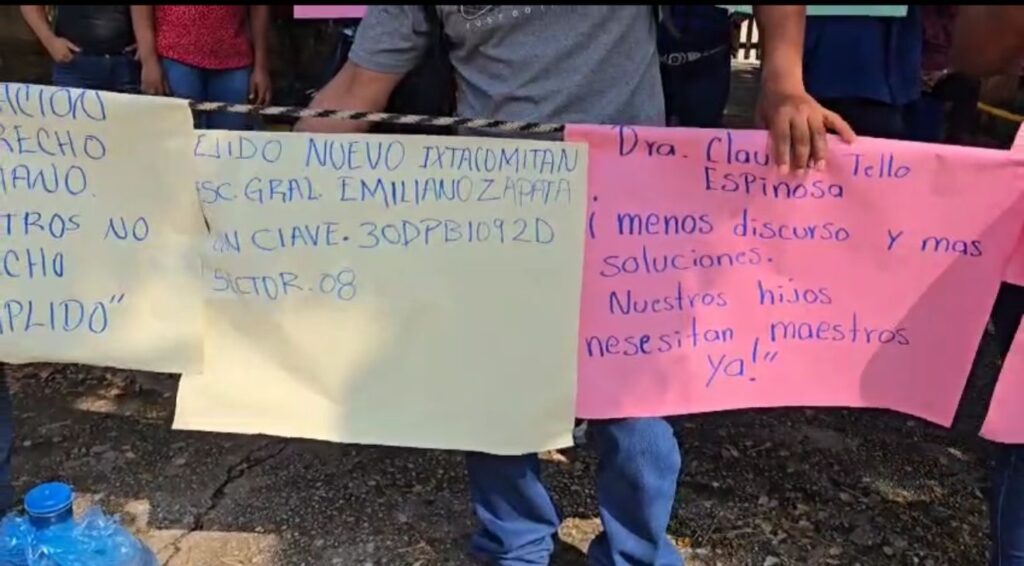 ACION
RECHO
MANO.
TROS NO
ECHO
MPLIDO"
EJIDO NUEVO IXTACOMITAN
ESC. GRAL EMILIANO ZAPATA
ON CLAVE. 30DPB1092D
SECTOR. 08
Dra. Clau Tello
Espinosa
¡ menos discurso y mas
soluciones.
Nuestros hijos
nesesitan maestros
ya!"